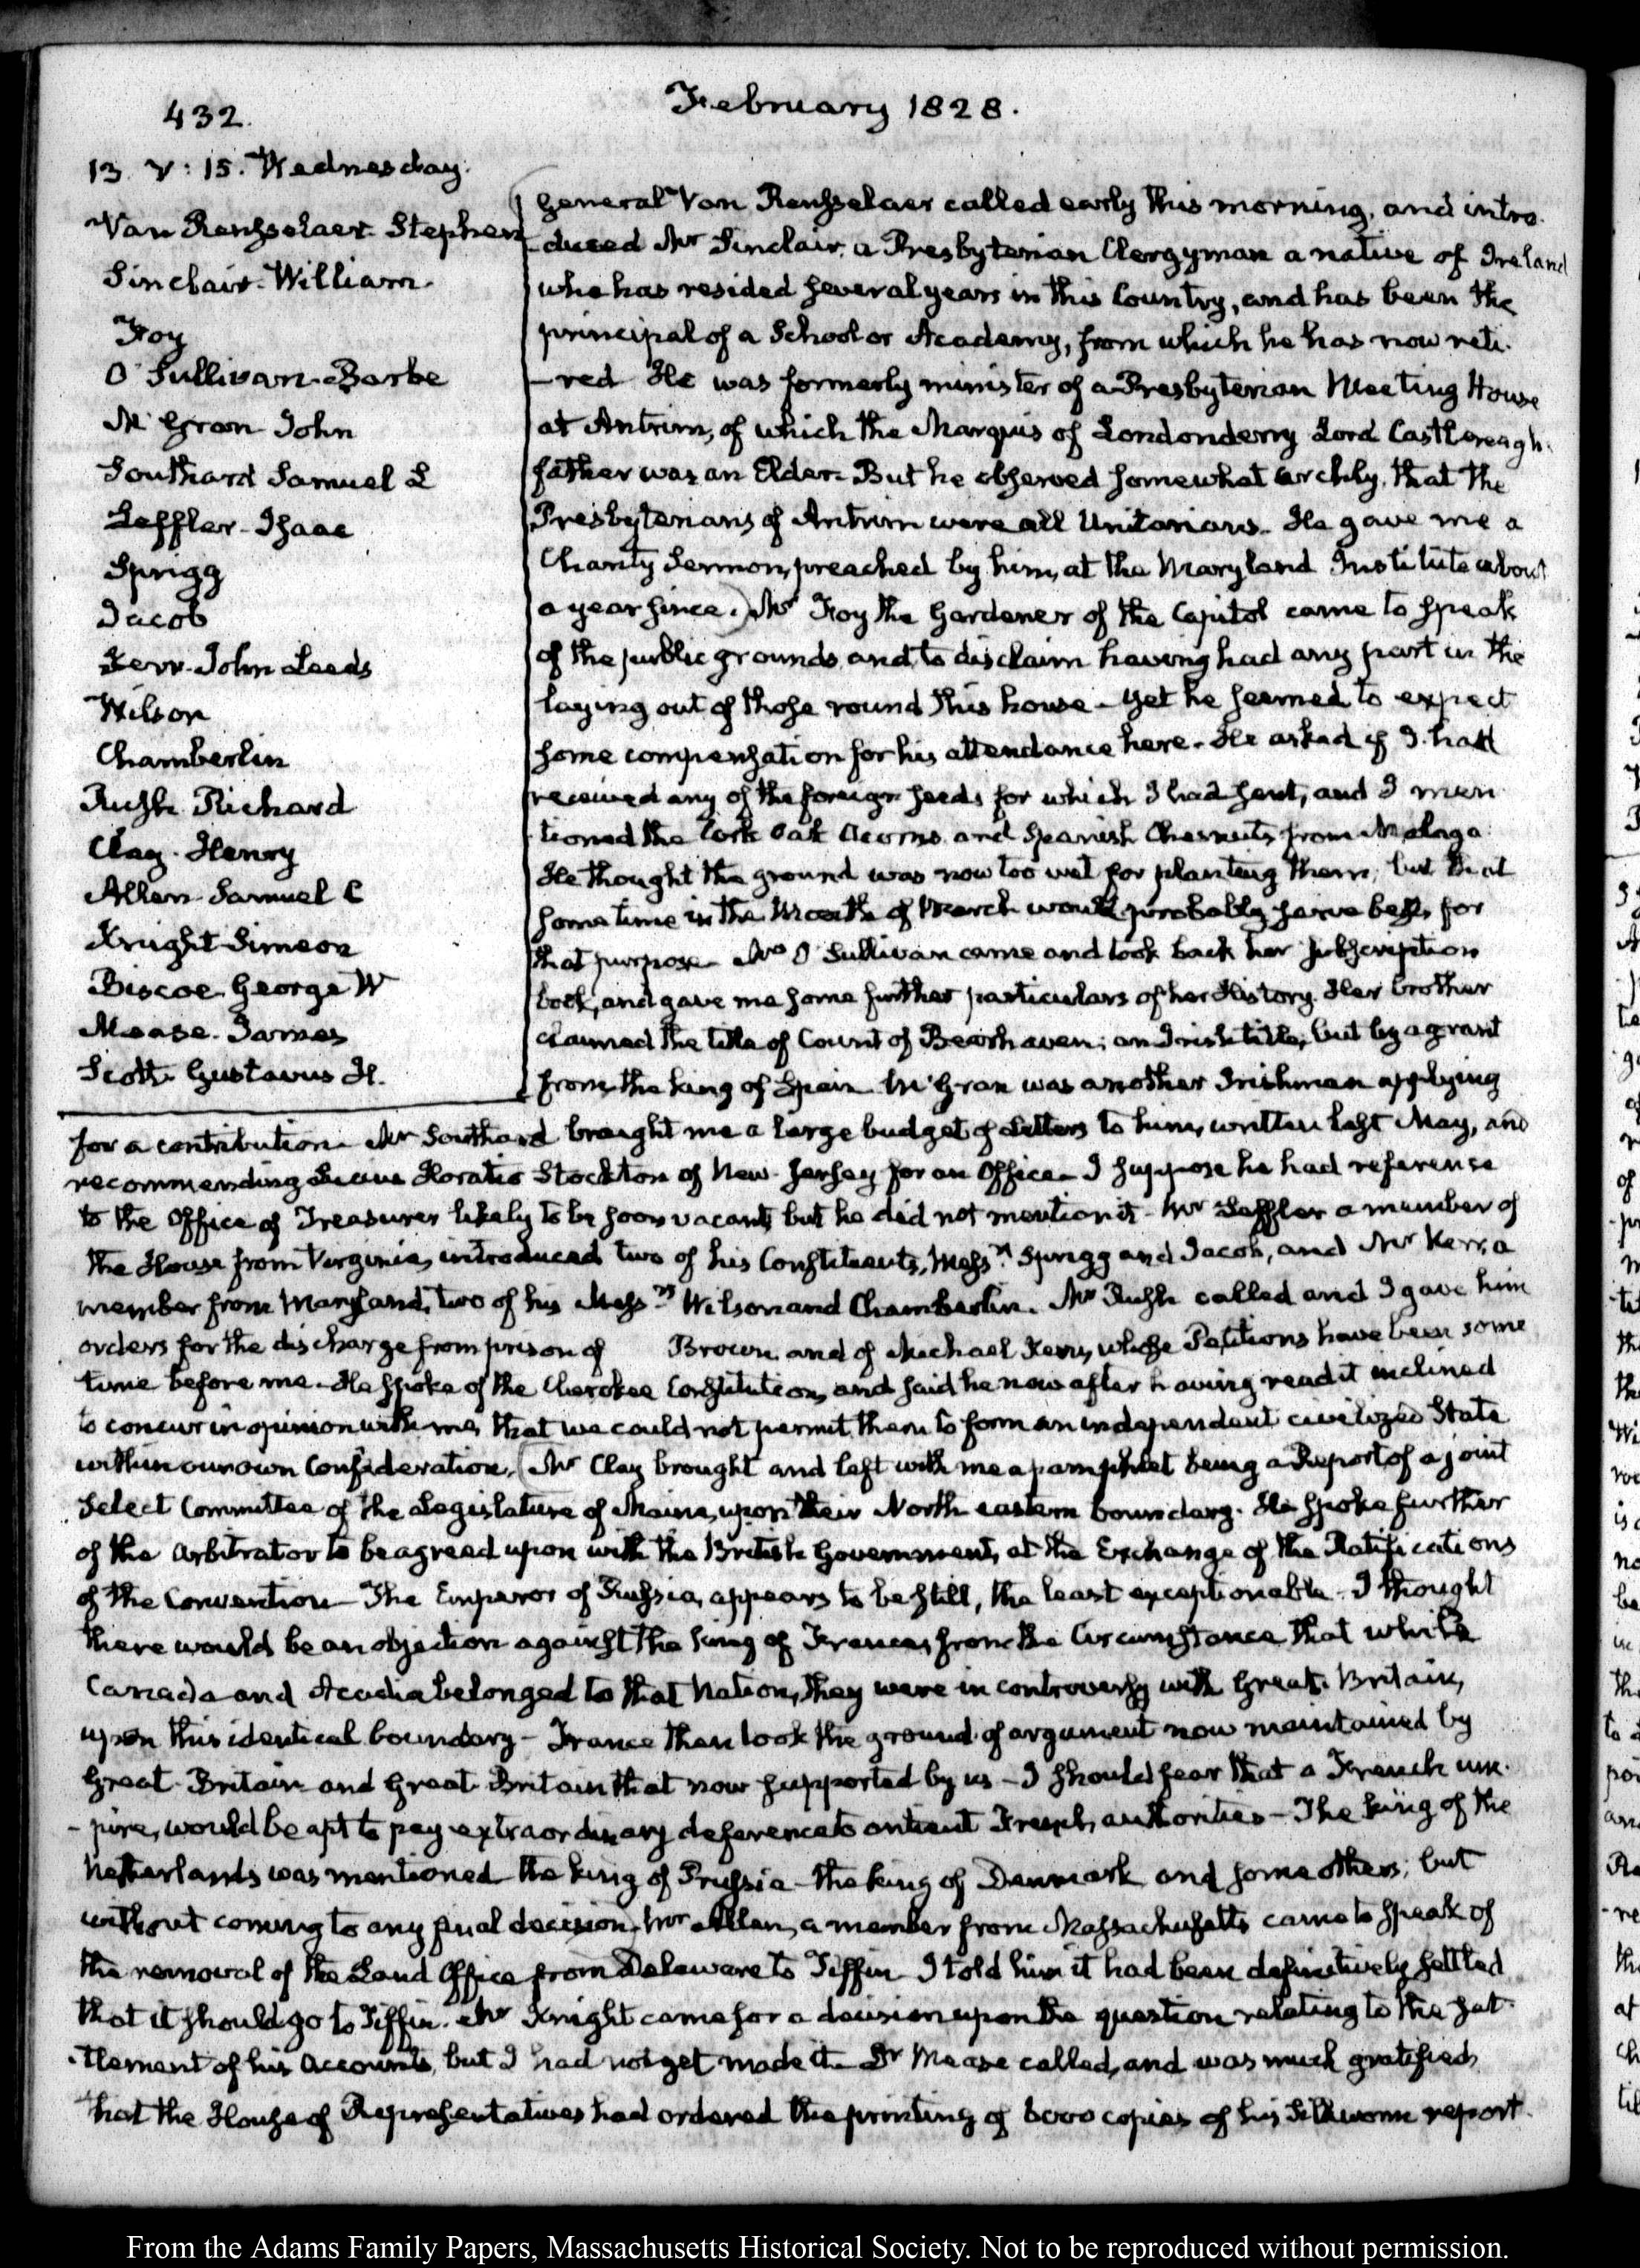 432.
February 1828.
13. V: 15. Wednesday.
Van Rensselaer. Stephen
Sinclair. William.
Foy
O'Sullivan. Barbe
McGran John
Southard Samuel L
Leffler. Isaac
Sprigg
Jacob
Kerr. John Leeds
Wilson
Chamberlin
Rush Richard
Clay. Henry
Allen Samuel C
Knight Simeon
Biscoe George W
Mease. James
Scott Gustavus H.
General Van Rensselaer called early this morning, and intro-
-duced Mr Sinclair, a Presbyterian Clergyman a native of Ireland
who has resided several years in this Country, and has been the
principal of a School or Academy, from which he has now reti-
-red He was formerly minister of a Presbyterian Meeting House
at Antrim, of which the Marquis of Londonderry Lord Castlereagh's
father was an Elder. But he observed somewhat archly, that the
Presbyterians of Antrim were all Unitarians. He gave me a
Charity Sermon, preached by him, at the Maryland Institute about
a year since. Mr Foy the Gardener of the Capitol came to speak
of the public grounds, and to disclaim having had any part in the
laying out of those round this house - yet he seemed to expect
some compensation for his attendance here. He asked if I had
received any of the foreign seeds for which I had sent, and I men-
-tioned the Cork Oak Acorns and Spanish Chesnuts from Malaga.
He thought the ground was now too wet for planting them, but that
some time in the Month of March would probably serve best, for
that purpose. Mrs O'Sullivan came and took back her subscription
book, and gave me some further particulars of her History. Her brother
claimed the title of Count of Bearhaven; an Irish title, but by a grant
from the king of Spain McGran was another Irishman applying
for a contribution. Mr Southard brought me a large budget of Letters to him, written last May, and
recommending Lucius Horatio Stockton of New-Jersey for an Office - I suppose he had reference
to the Office of Treasurer likely to be soon vacant, but he did not mention it - Mr Leffler a member of
the House from Virginia, introduced two of his Constituents, Messrs Sprigg and Jacob, and Mr Kerr, a
member from Maryland, two of his Messrs Wilson and Chamberlin. Mr Rush called and I gave him
orders for the discharge from prison of Brown and of Michael Kerr, whose Petitions have been some
time before me. He spoke of the Cherokee Constitution, and said he now after having read it inclined
to concur in opinion with me, that we could not permit them to form an independent civilized State
within our own Confederation. Mr Clay brought and left with me a pamphlet being a Report of a joint
Select Committee of the Legislature of Maine, upon their North eastern boundary. He spoke further
of the Arbitrator to be agreed upon with the British Government, at the Exchange of the Ratifications
of the Convention - The Emperor of Russia, appears to be still, the least exceptionable - I thought
there would be an objection against the king of France, from the Circumstance that while
Canada and Acadia belonged to that Nation, they were in controversy with Great-Britain,
upon this identical boundary - France then took the ground of argument now maintained by
Great-Britain and Great Britain that now supported by us - I should fear that a French um-
-pire, would be apt to pay extraordinary deference to antient French authorities - The king of the
Netherlands was mentioned the king of Prussia - the king of Denmark and some others; but
without coming to any final decision. Mr Allen, a member from Massachusetts came to speak of
the removal of the Land Office from Delaware to Tiffin I told him it had been definitively settled
that it should go to Tiffin. Mr Knight came for a decision upon the question relating to the set-
-tlement of his Accounts, but I had not yet made it. Dr Mease called, and was much gratified
that the House of Representatives had ordered the printing of 6000 copies of his Silkworm report.
From the Adams Family Papers, Massachusetts Historical Society. Not to be reproduced without permission.